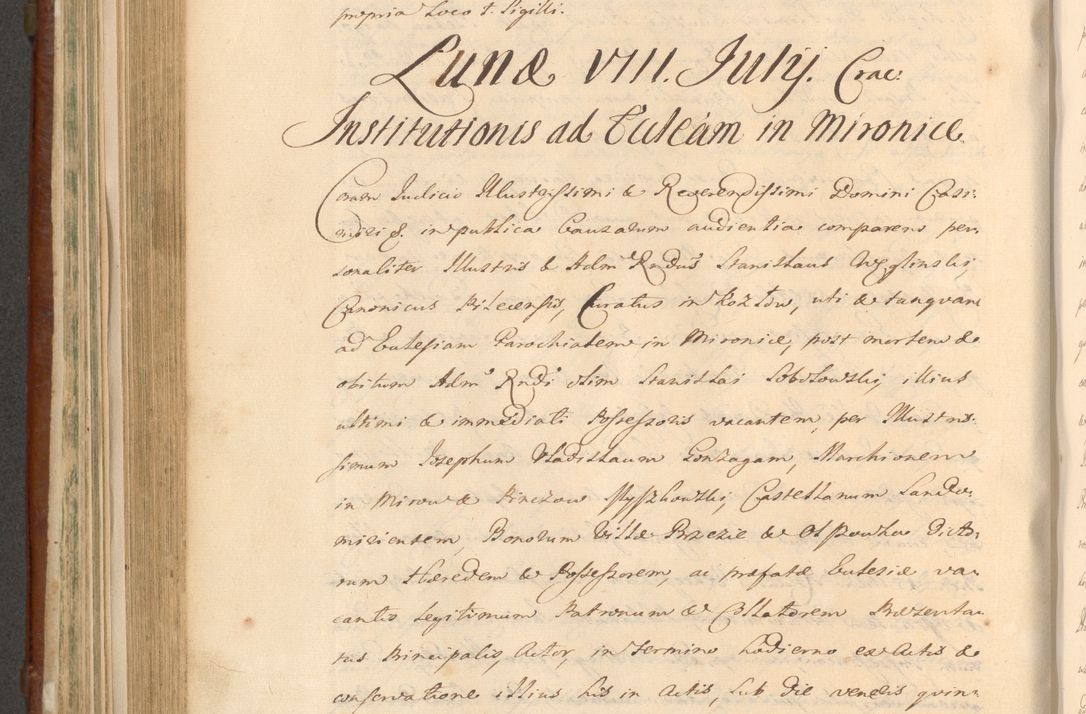 propria Loco t. Sigilli.
Lunæ VIII. Julij. Crac:
Institutionis ad Eccleãm in Mironice
Coram Judicio Illustrissimi & Reverendissimi Domini Casi-
miri &. in publica Causarum audientia comparens per-
sonaliter Illustris & Adm Rndus Stanislaus
Canonicus Pilecensis, Curatus in Kozłow, uti & tanquam
ad Eccłesiam Parochialem in Mironice, post mortem &
obitum Adm Rndi olim Stanislai Sobolowski, illius
ultimi & immediati Possessoris vacantem, per Illustris-
simum Josephum Vladislaum Gonzagam, Marchionem
in Mirow & Pinczow Myszkowski, Castellanum Sando-
miriensem, Bonorum Villæ Brzezie & Olszowka Dicto-
rum Hæredem & Possessorem, ac præfatæ Ecclesiæ va-
cantis legitimum Patronum & Collatorem Præsenta-
tus Principalis, Actor, in termino hodierno ex Actis &
conservatione illius his in Actis, sub die veneris quin-